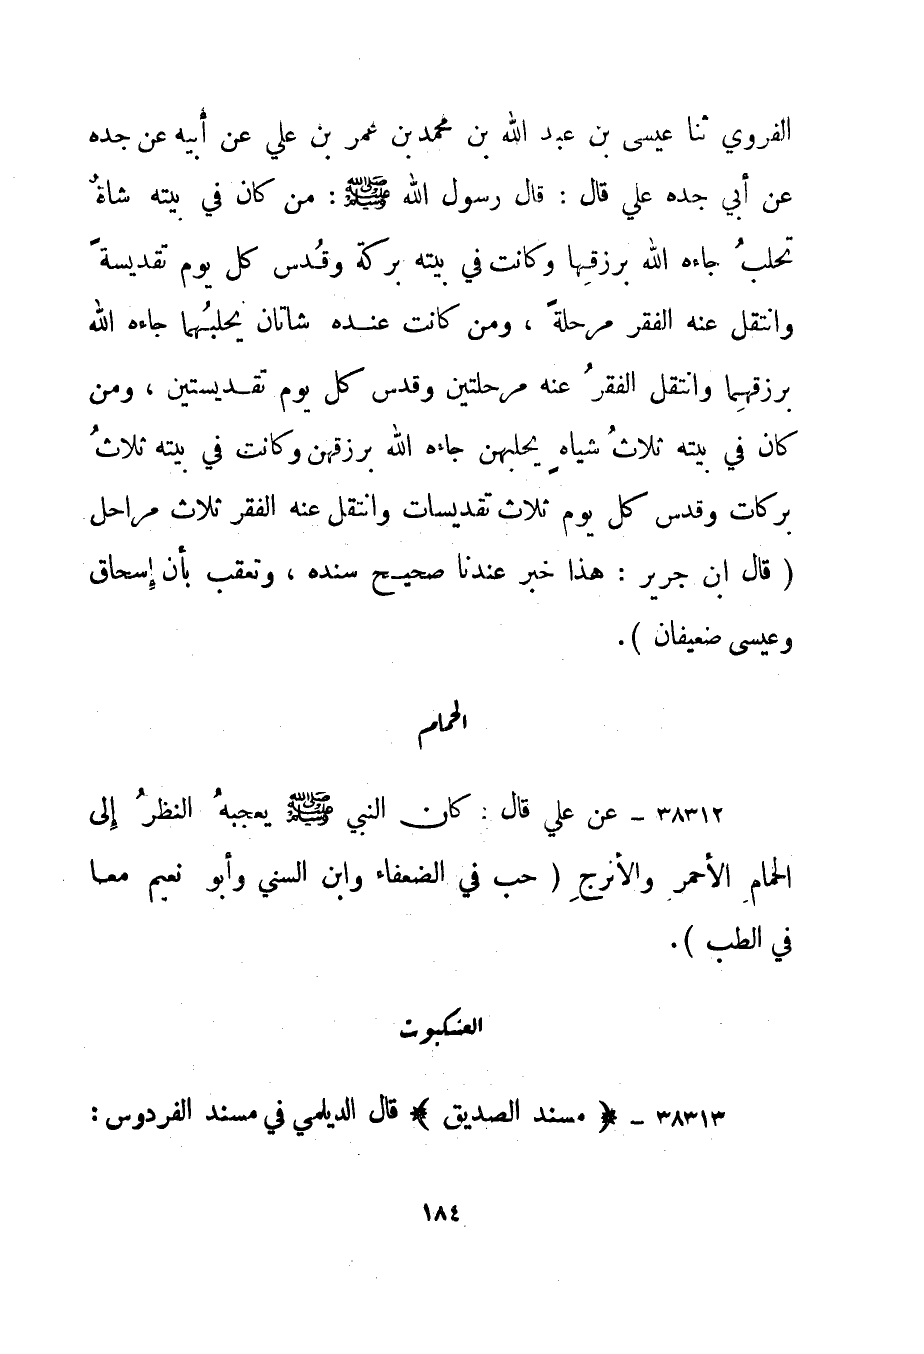 الفروي ثنا عيسى بن عبد الله بن محمد بن عمر بن علي عن أبيه عن جده
عن أبي جده علي قال : قال رسول الله ﷺ : من كان في بيته شاةٌ
تحلبُ جاءه الله برزقِها وكانت في بيته بركة وقُدس كل يوم تقديسةً
وانتقل عنه الفقر مرحلةً ، ومن كانت عنده شاتان يحلبُهما جاءه الله
برزقهِما وانتقل الفقرُ عنه مرحلتين وقدس كل يوم تقديستين ، ومن
كان في بيته ثلاثُ شياهٍ يحلبهن جاءه الله برزقهن وكانت في بيته ثلاثُ
بركات وقدس كل يوم ثلاث تقديسات وانتقل عنه الفقر ثلاث مراحل
( قال ابن جرير : هذا خبر عندنا صحيح سنده ، وتعقب بأن إسحاق
وعيسى ضعيفان ) .
الحمام
٣٨٣١٢ ـ عن علي قال : كان النبي ﷺ يعجبهُ النظرُ إلى
الحمامِ الأحمرِ والأترجِ ( حب في الضعفاء وابن السني وأبو نعيم معا
في الطب ) .
العنكبوت
٣٨٣١٣ ـ ﴿ مسند الصديق ﴾ قال الديلمي في مسند الفردوس :
١٨٤